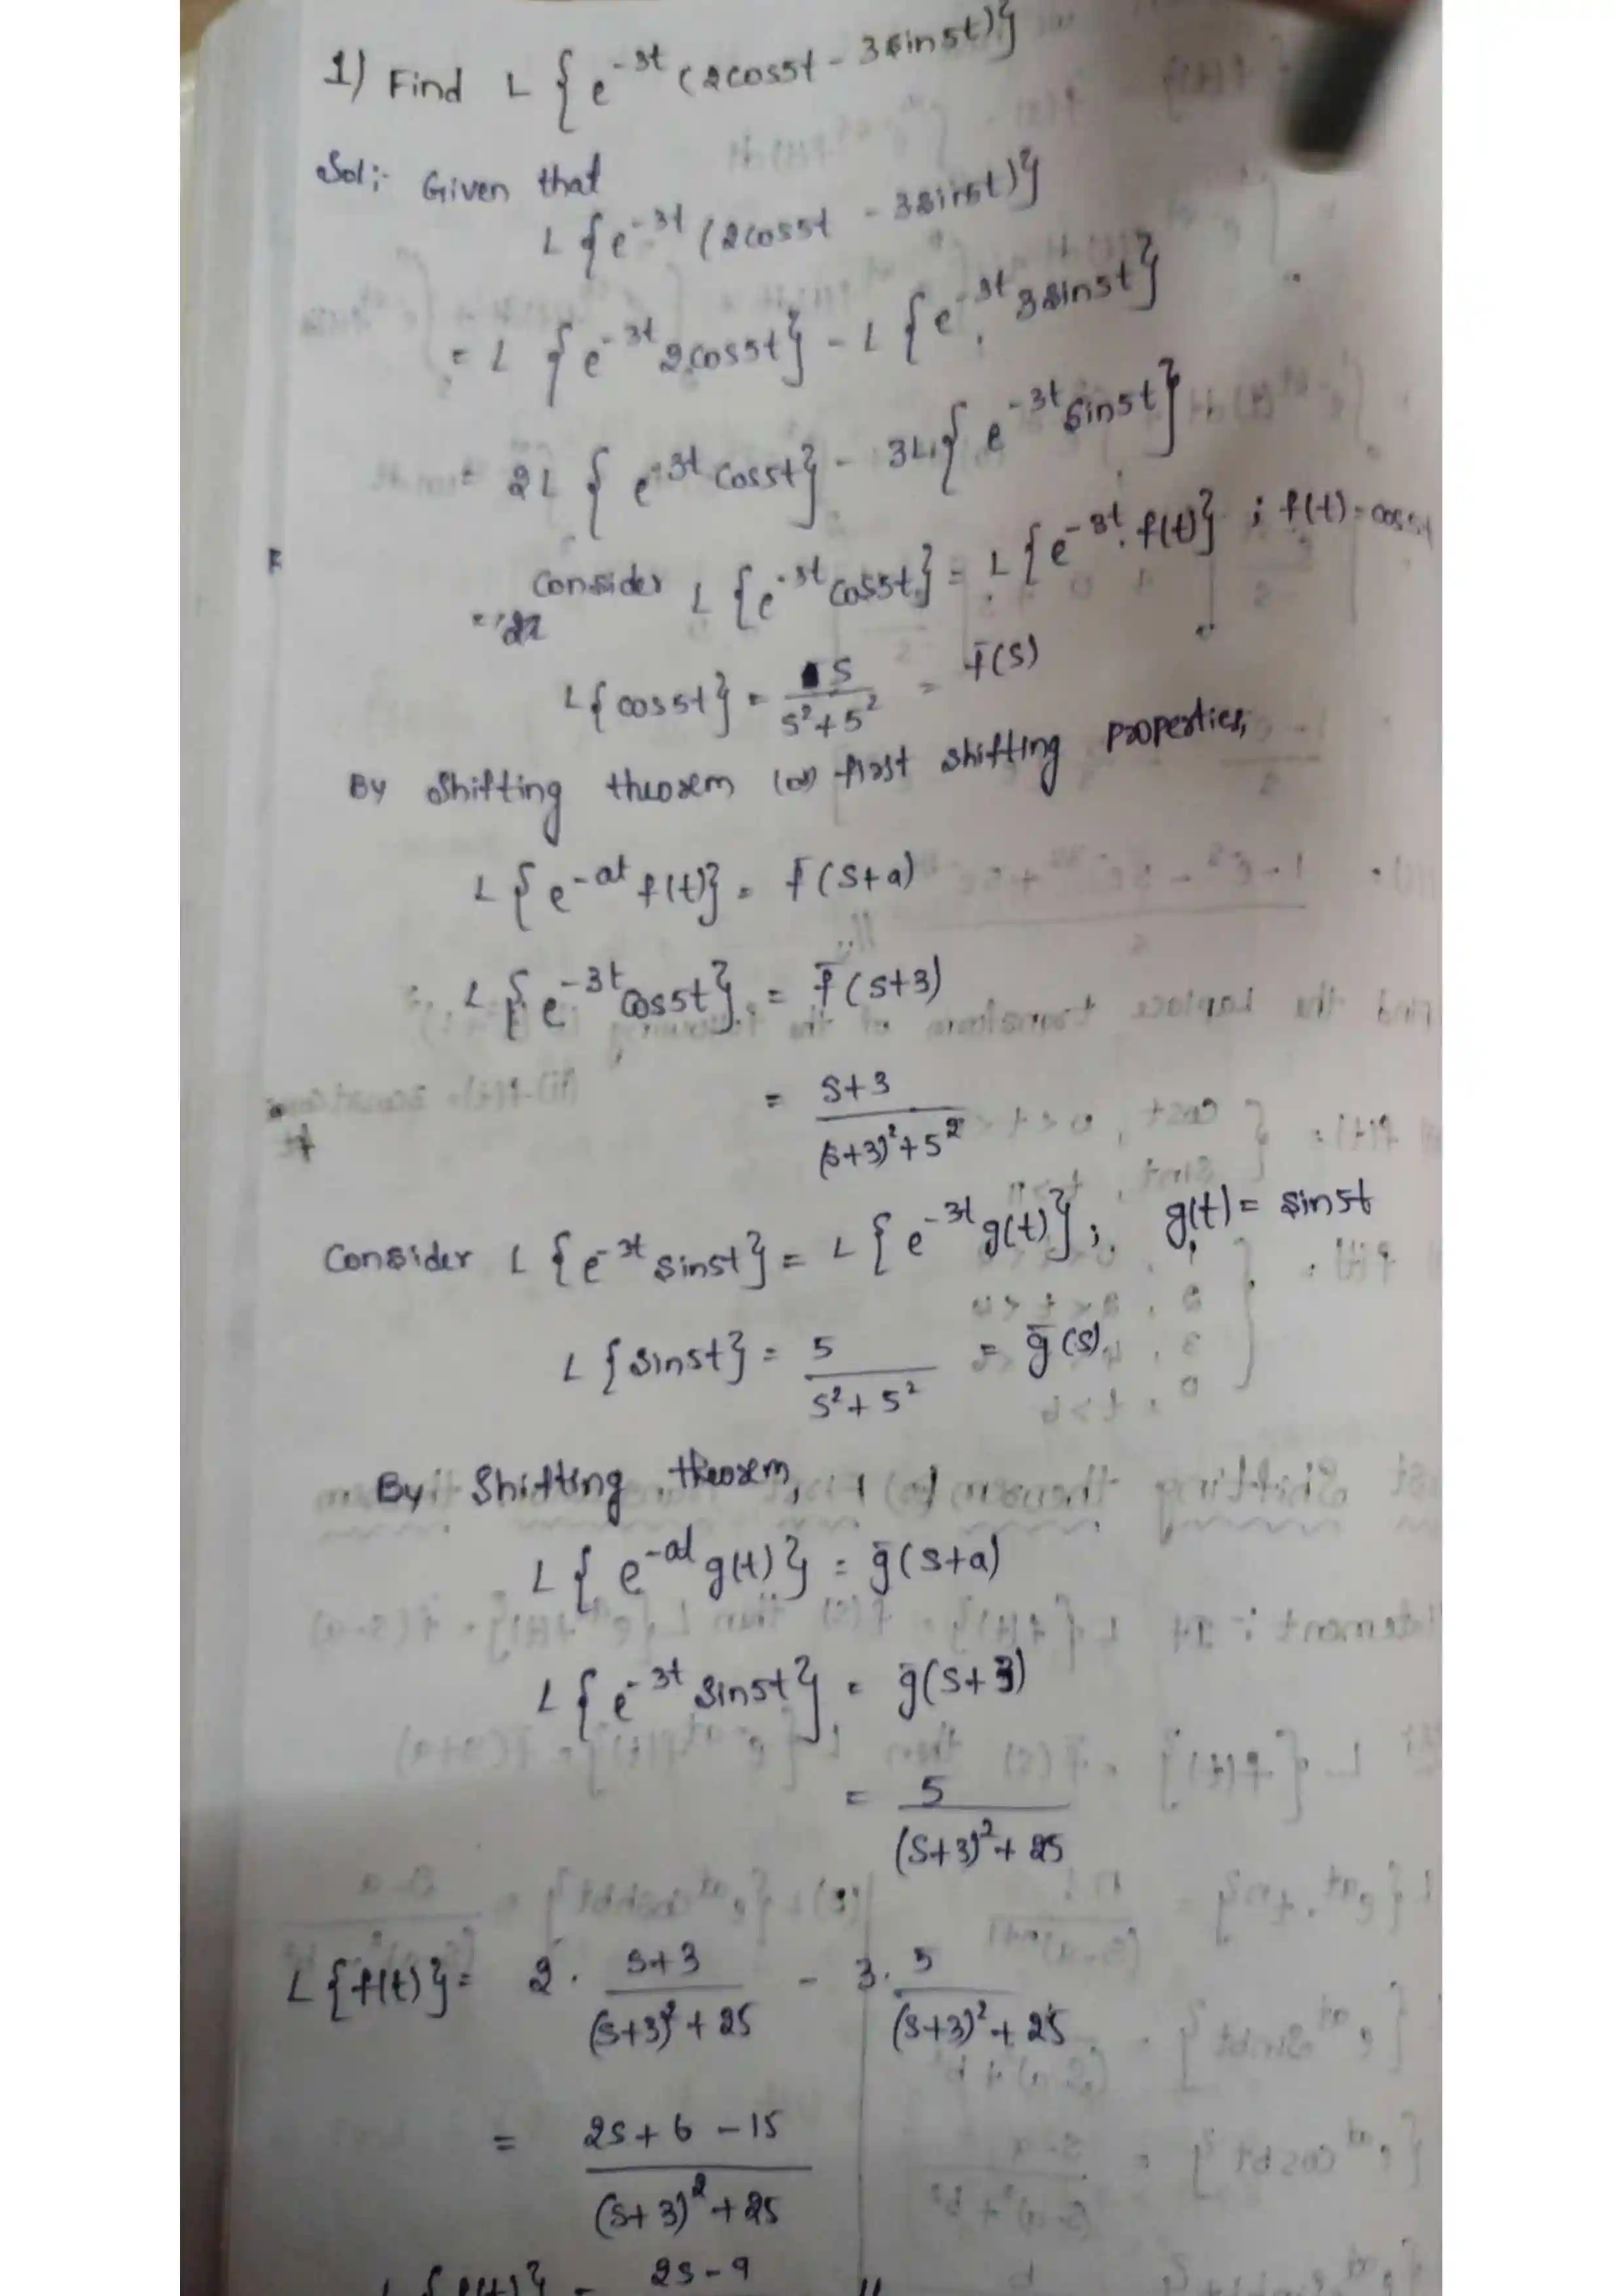 1) Find L {e^-3t (2cos5t - 3sin5t)}
Sol:- Given that
L {e^-3t (2cos5t - 3sin5t)}
= L {e^-3t 2cos5t} - L {e^-3t 3sin5t}
= 2L {e^-3t cos5t} - 3L {e^-3t sin5t}
Consider L {e^-3t cos5t} = L {e^-3t f(t)} ; f(t) = cos5t
L {cos5t} = s/(s²+5²) = f̄(s)
By shifting theorem (or) first shifting properties,
L {e^-at f(t)} = f̄(s+a)
L {e^-3t cos5t} = f̄(s+3)
= (s+3)/((s+3)²+5²)
Consider L {e^-3t sin5t} = L {e^-3t g(t)} ; g(t) = sin5t
L {sin5t} = 5/(s²+5²) = ḡ(s)
By Shifting theorem,
L {e^-at g(t)} = ḡ(s+a)
L {e^-3t sin5t} = ḡ(s+3)
= 5/((s+3)²+25)
L {f(t)} = 2 · (s+3)/((s+3)²+25) - 3 · 5/((s+3)²+25)
= (2s+6-15)/((s+3)²+25)
L {f(t)} = 2s-9 //